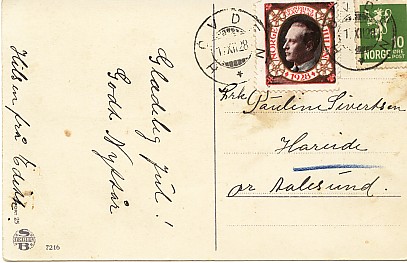 Gladelig Jul!
Godt Nyttår
Hilsen frå Edith.
HOVDEN
1.XII.28
NORGE
1928
NORGE
10
ØRE
POST
Frk. Pauline Sivertsen
Hareide
pr Aalesund.
7216